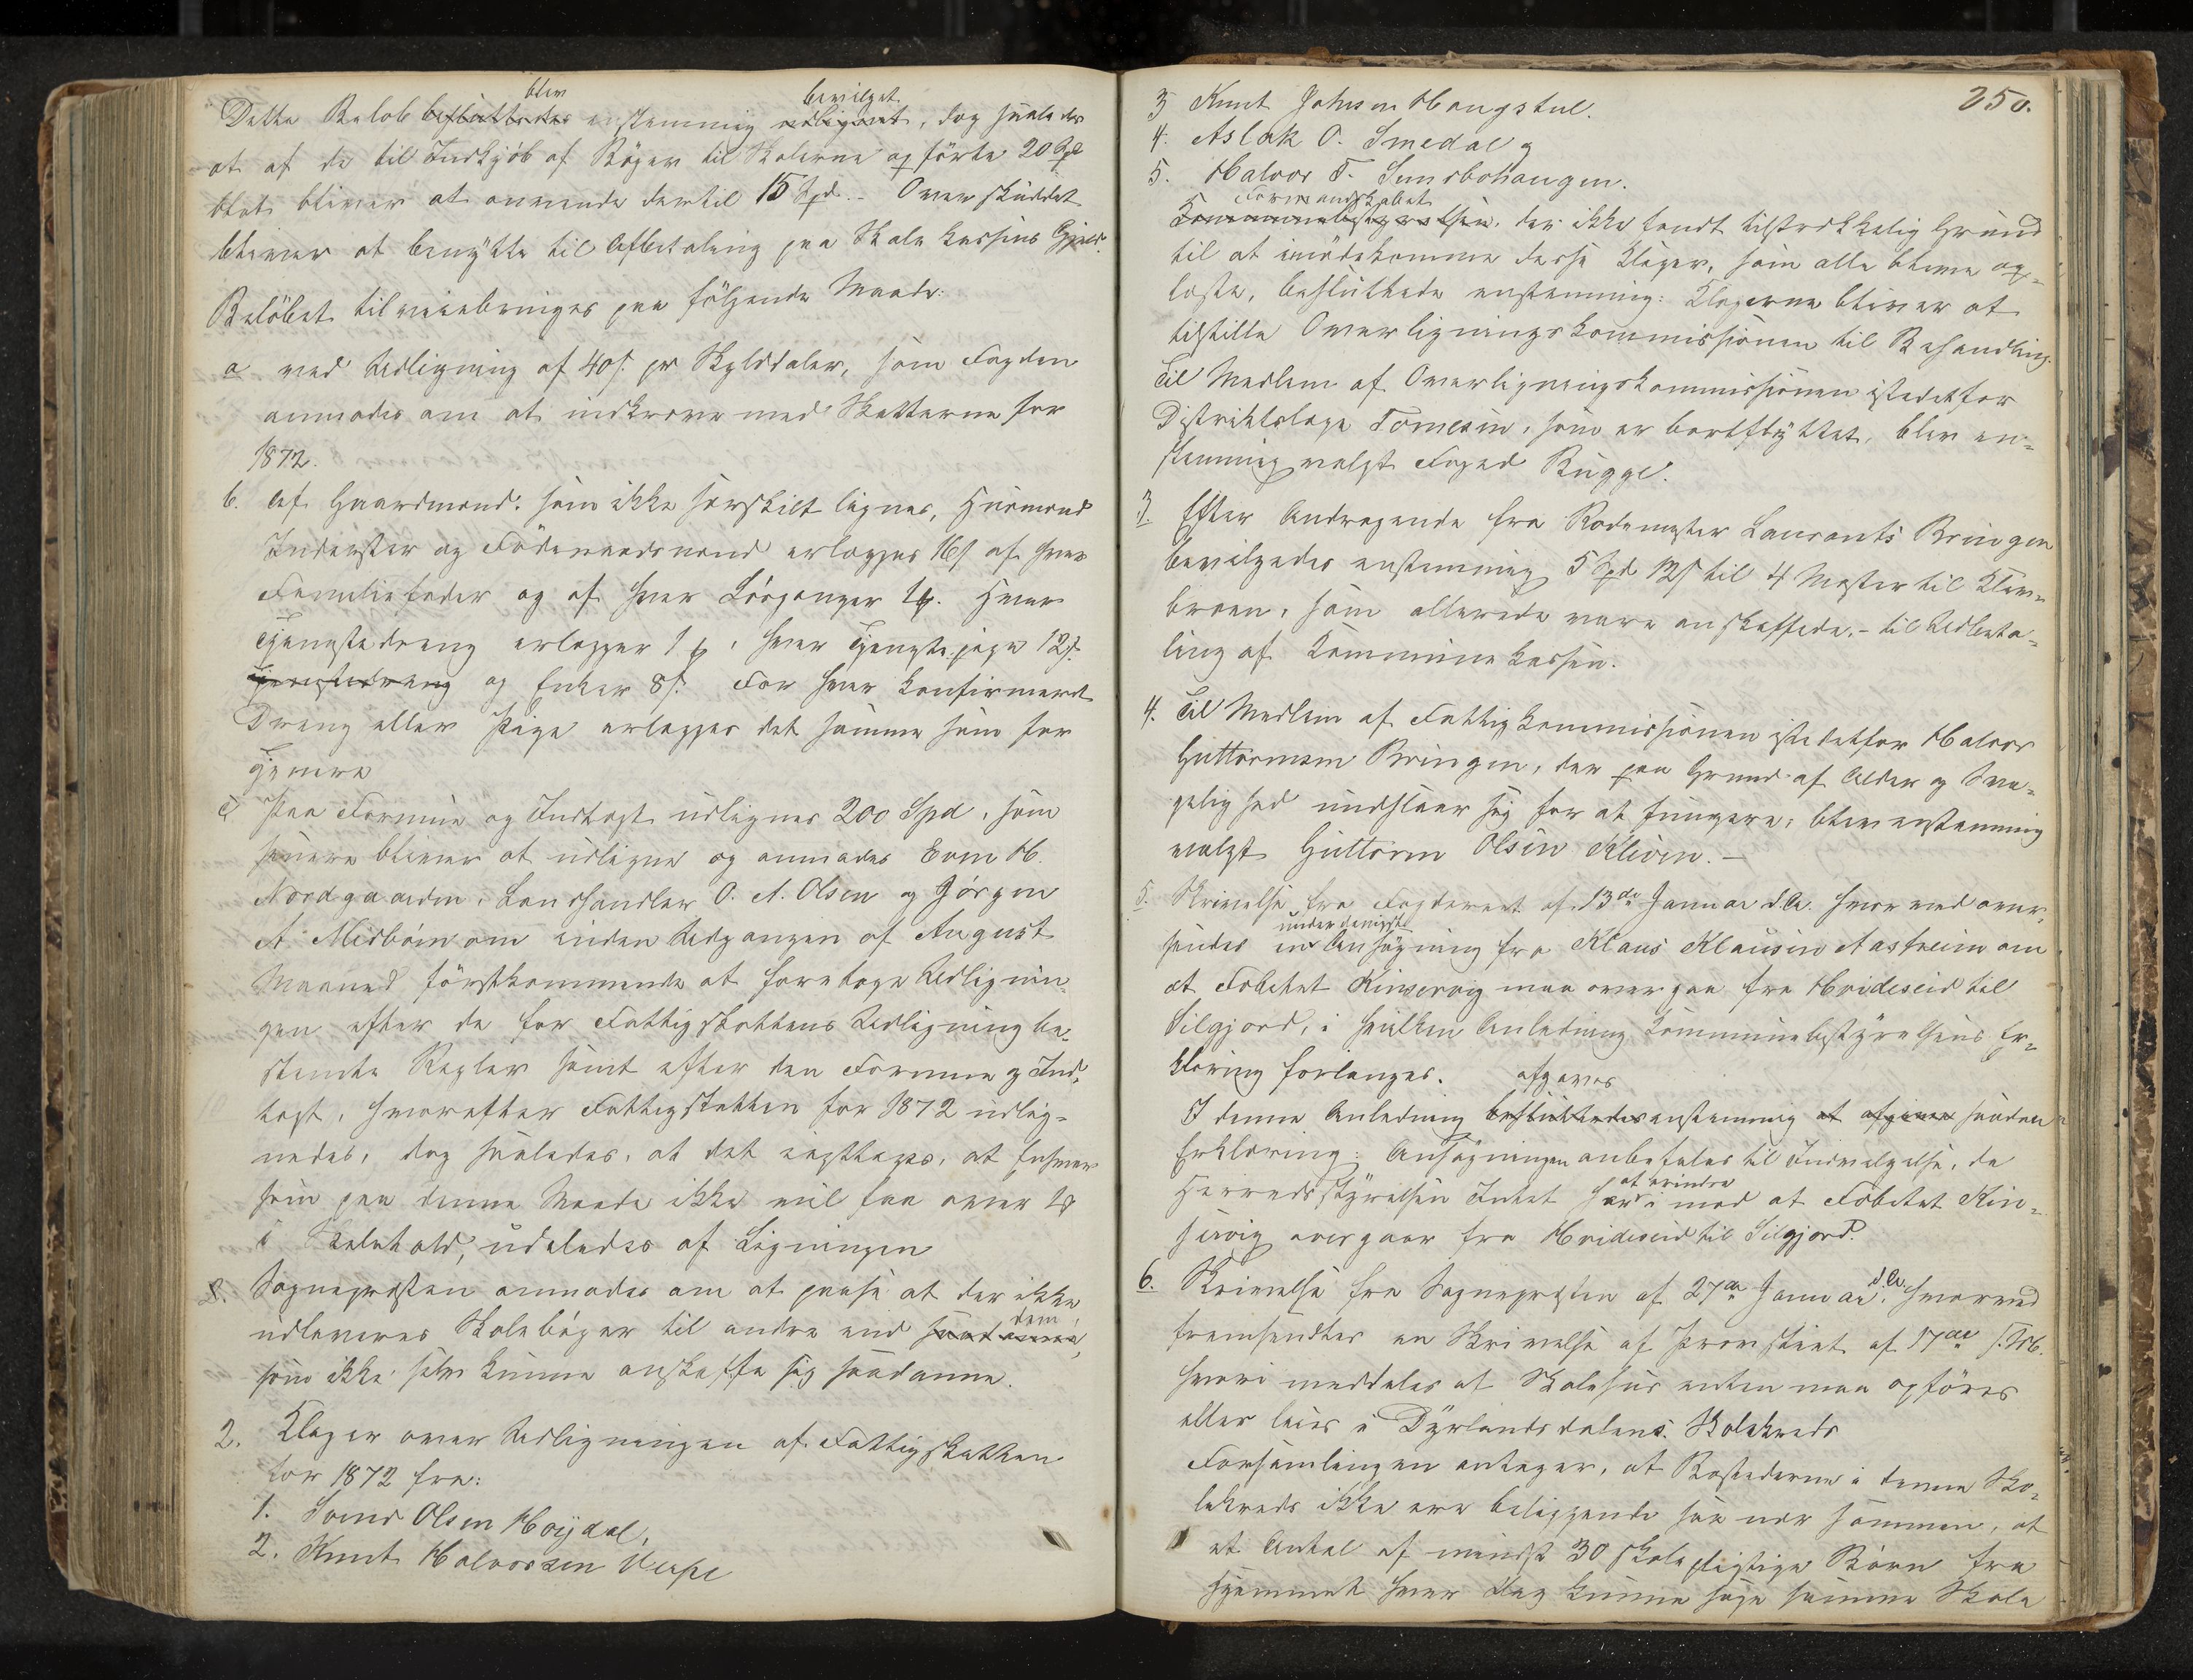 blev bevilget
Dette Beløb besluttedes enstemmig udlignet, dog saaledes
at af de til Indkjøb af Bøger til Skolerne opførte 20 Spd
blot bliver at anvende dertil 15 Spd. - Overskuddet
bliver at benytte til Afbetaling paa Skolekassens Gjæld.
Beløbet tilveiebringes paa følgende Maade:
a ved Udligning af 40 s. pr Skylddaler, som Fogden
anmodes om at indkræve med Skatterne for
1872.
b. Af Gaardmænd, som ikke særskilt lignes, Husmænd
Inderster og Føderaadsmænd erlægges 16 s af hver
Familiefader og af hver Løsgænger 1 . Hver
Tjenestedreng erlægger 1 , hver Tjenestepige 12 s.
Tjenestedreng og Enker 8 s. For hver konfirmeret
Dreng eller Pige erlægges det samme som for
Tjenere
c Paa Formue og Indtægt udlignes 200 Spd, som
senere bliver at udligne og anmodes Even H.
Nordgaarden, Landhandler O. A. Olsen og Jörgen
A. Midbøin om inden Udgangen af August
Maaned førstkommende at foretage Udlignin-
gen efter de for Fattigskattens Udligning be-
stemte Regler samt efter den Formue og Ind-
tægt, hvorefter Fattigskatten for 1872 udlig-
nedes, dog saaledes, at det iagttages, at Enhver
som paa denne Maade ikke vil faa over
i Skolehold, udelades af Ligningen
8. Sognepræsten anmodes om at paase at der ikke
udleveres Skolebøger til andre end saadanne dem,
som ikke selv kunne anskaffe sig saadanne.
2. Klager over Udligningen af Fattigskatten
for 1872 fra:
1. Svend Olsen Høydal,
2. Knut Halvorsen
250.
3 Knut Johnsen Haugstul.
4. Aslak O. Smedal og
5. Halvor T. Sundbøhaugen.
Formandskabet
Kommunebestyrelsen, der ikke fandt tilstrækkelig Grund
til at imødekomme disse Klager, som alle bleve op-
læste, besluttede enstemmig: Klagerne bliver at
tilstille Overligningskommissionen til Behandling.
Til Medlem af Overligningskommissionen istedetfor
Distriktslæge Tomesen, som er bortflyttet, blev en-
stemmig valgt Foged Rugge.
3. Efter Andragende fra Rodemester Laurants Bringen
bevilgedes enstemmig 5 Spd 12 s til 4 Master til Klev-
broen, som allerede vare anskaffede. - til Udbeta-
ling af Kommunekassen.
4. Til Medlem af Fattigkommissionen istedetfor Halvor
Guttormsen Bringen, der paa Grund af Alder og Sva-
gelighed undslaar sig for at fungere, blev enstemmig
valgt Guttorm Olsen Kleven. -
5. Skrivelse fra Fogderiet af 13de Januar d.A. hvorved over-
underdanigst
sendes en Ansøgning fra Klaus Klausen Aastveim om
at Folketet Kinservig maa overgaa fra Hvideseid til
Silgjord, i hvilken Anledning Kommunebestyrelsens Er-
klæring forlanges. afgaves
I denne Anledning besluttedes enstemmig at afgive saadan
Erklæring: Ansøgningen anbefales til Indvilgelse, da
at erindre
Herredsstyrelsen Intet har imod at Folketet Kin-
servig overgaar fra Hvideseid til Silgjord.
6. Skrivelse fra Sognepræsten af 27de Januar d.A. hvorved
fremsendtes en Skrivelse af Provstiet af 17de s. M.
hvori meddeles at Skolehus enten maa opføres
eller leies i Dyrlandsdalens Skolekreds
Forsamlingen antager, at Bostederne i denne Sko-
lekreds ikke ere beliggende saa nær sammen, at
et Antal af mindst 30 skolepligtige Børn fra
Hjemmet hver Dag kunne søge samme Skole